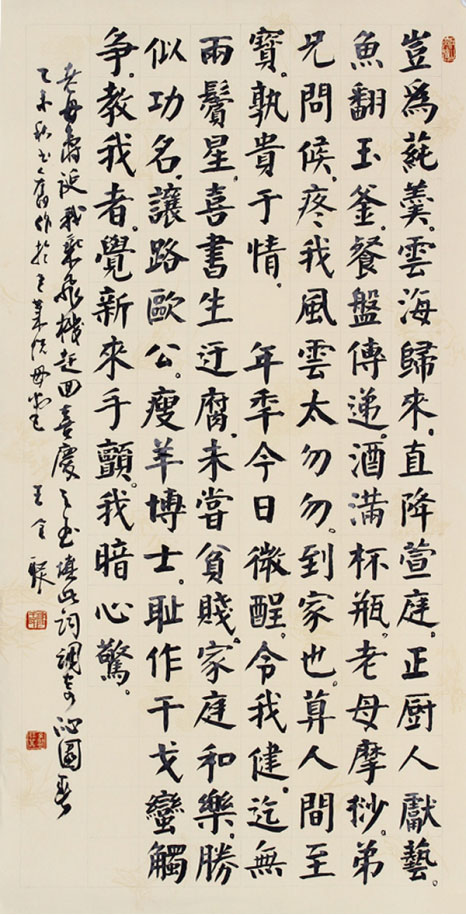 豈為蒓羹。雲海歸來。直降萱庭。正厨人獻藝。
魚翻玉釜。餐盤傳遞。酒滿杯瓶。老母摩挱。弟
兄問候。疼我風雲太勿勿。到家也。算人間至
寳。孰貴于情。 年秊今日微酲。令我健。迄無
雨鬢星。喜書生迂腐。未嘗貧賤。家庭和樂。勝
似功名。讓路歐公。瘦羊博士。耻作干戈蠻觸
争。教我者。覺新來手顫。我暗心驚。
老母壽誕我乘飛機趕回喜慶之至填此詞調寄沁園春
乙未秋書舊作於 侍母 王